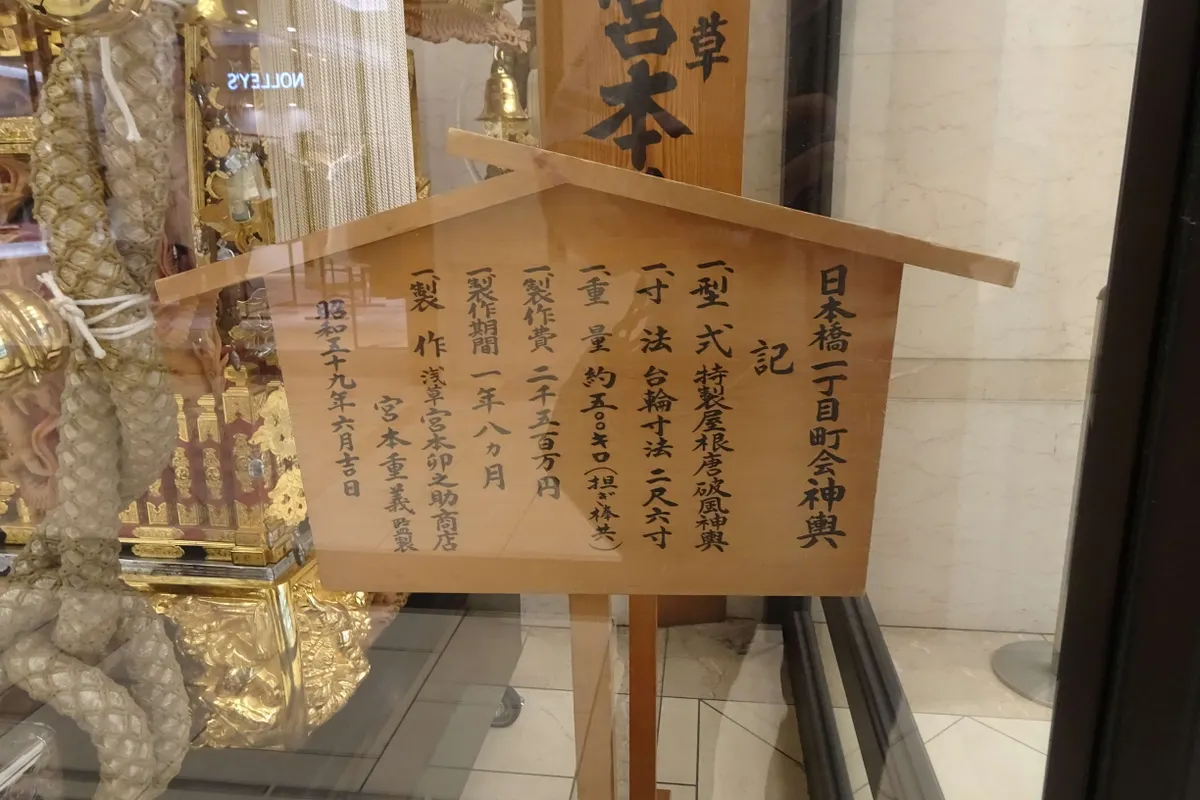 日本橋一丁目町会神輿
記
一、型式 特製屋根唐破風神輿
一、寸法 台輪寸法 二尺六寸
一、重量 約五〇〇キロ(担ぎ棒共)
一、製作費 二千五百万円
一、製作期間 一年八ヵ月
一、製作 浅草宮本卯之助商店
宮本重義監製
昭和五十九年六月吉日
草
宮本
NOLLEY'S